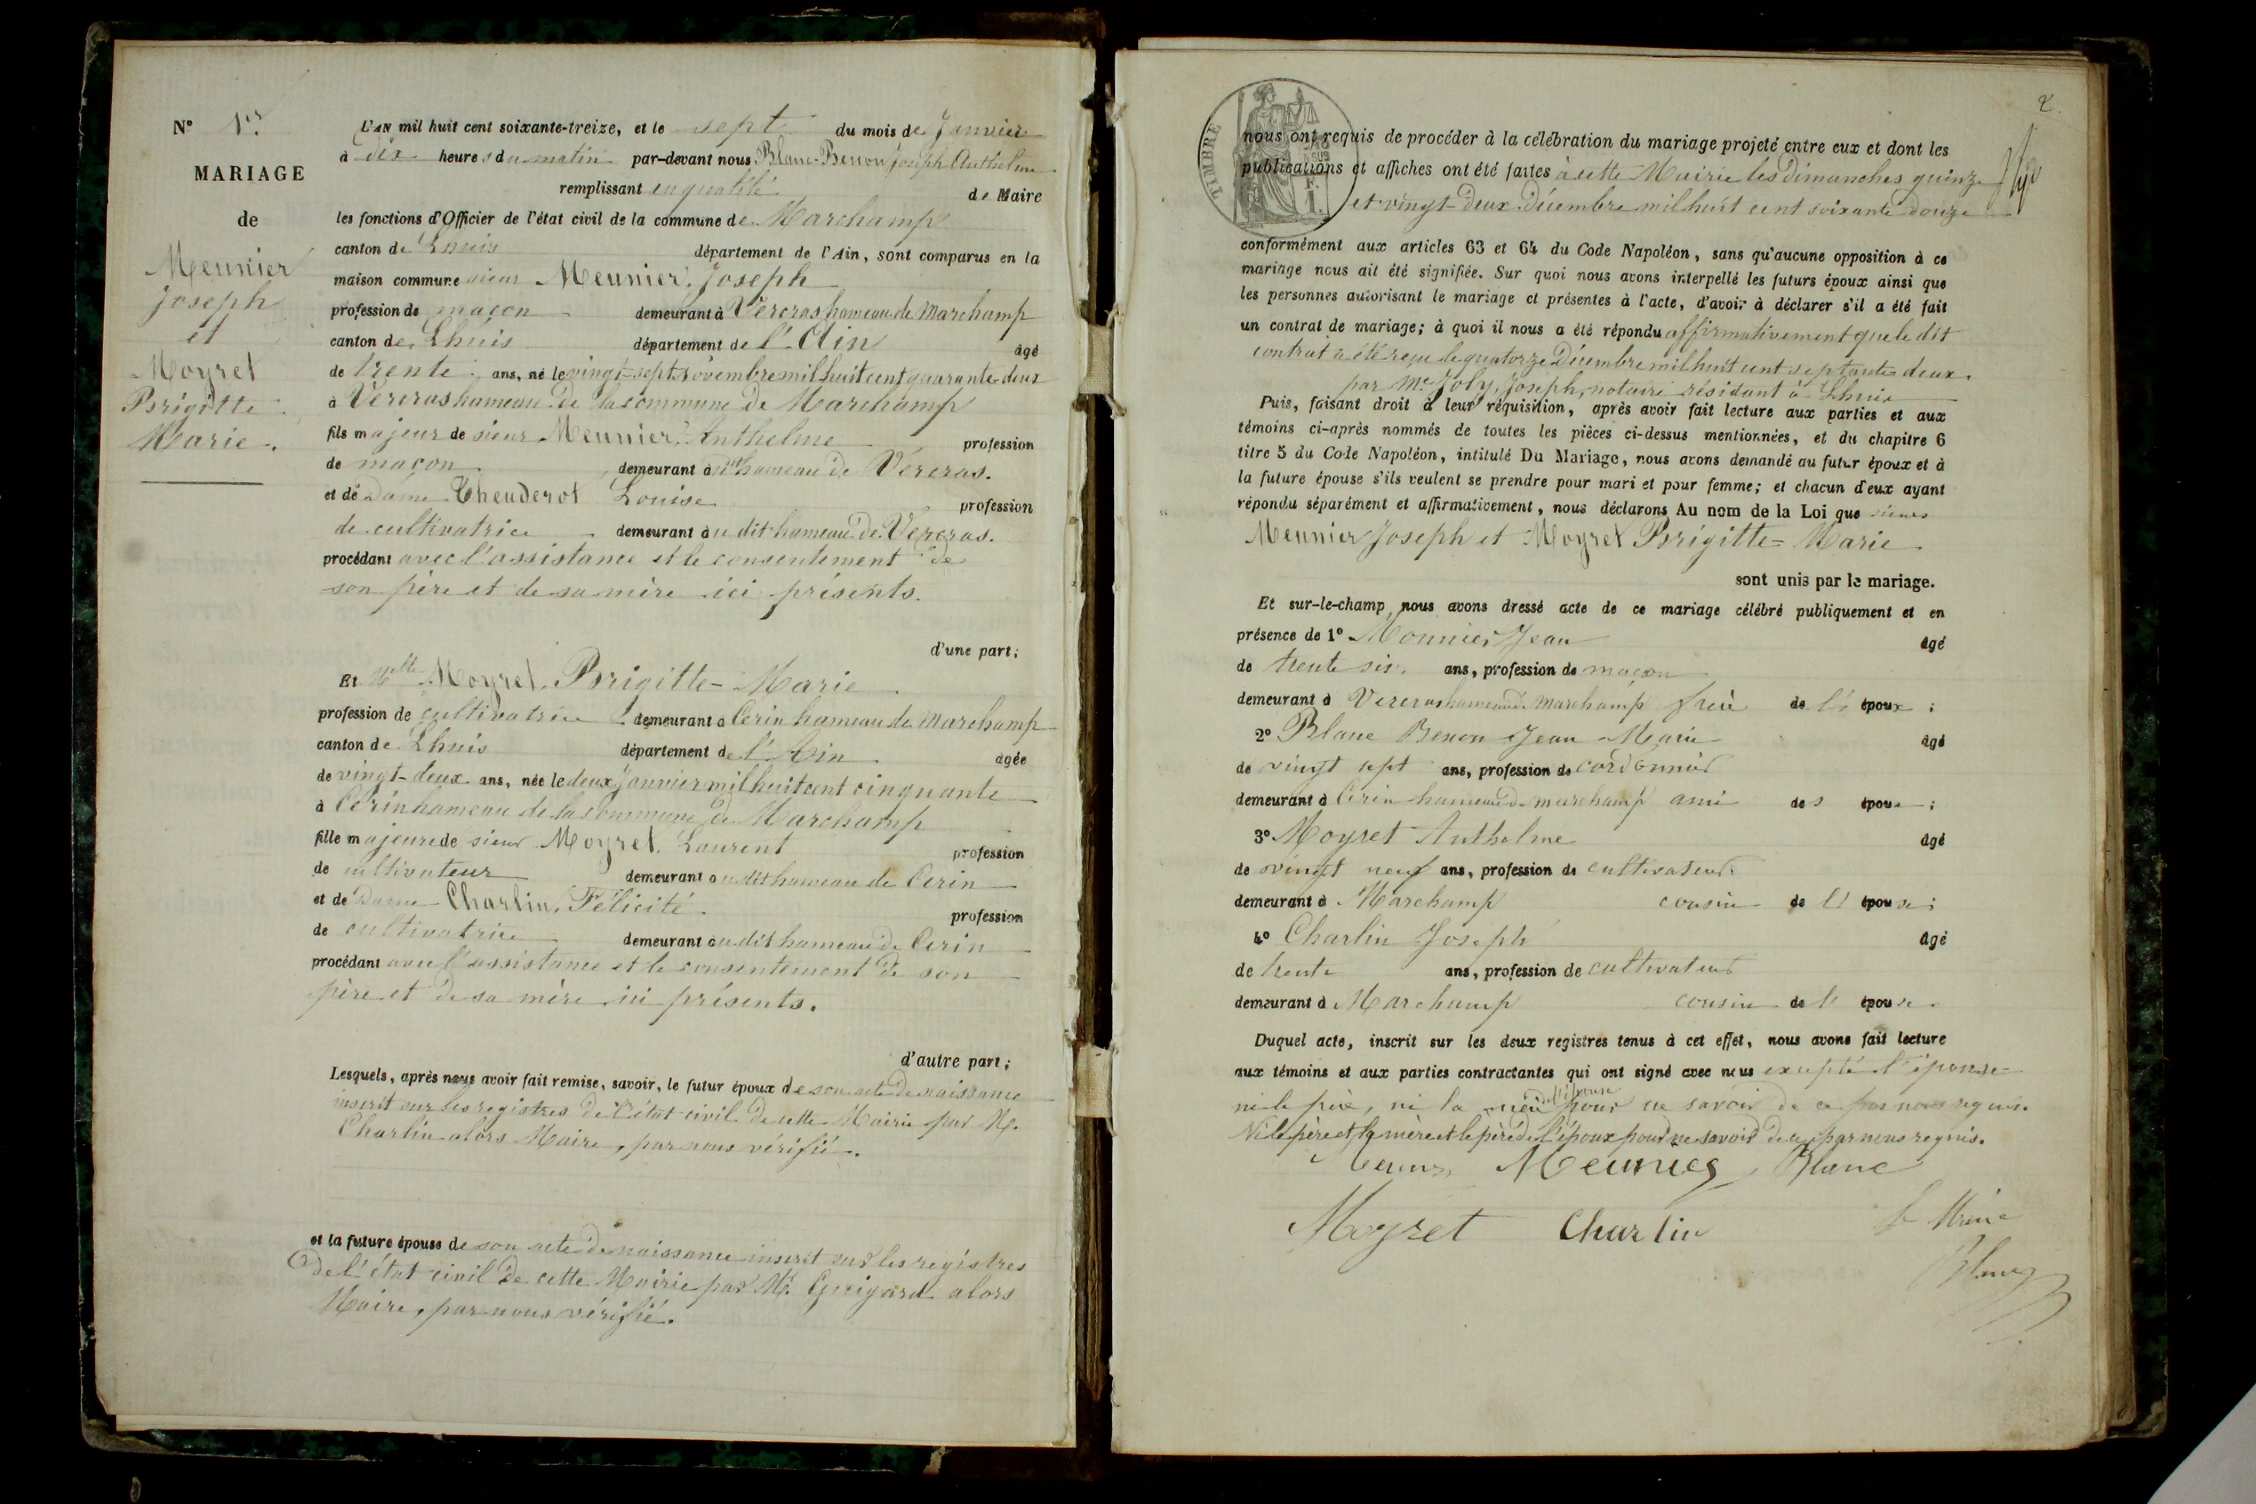 N° 1er
MARIAGE
de
Meunier
Joseph
et
Moyret
Brigitte
Marie.
L'AN mil huit cent soixante-treize, et le sept du mois de Janvier
à dix heures du matin par-devant nous Blanc-Benon Joseph Anthelme
remplissant en qualité de Maire
les fonctions d'Officier de l'état civil de la commune de Marchamp
canton de Lhuis département de l'Ain, sont comparus en la
maison commune sieur Meunier, Joseph
profession de maçon demeurant à Vercras hameau de Marchamp
canton de Lhuis département de l'Ain âgé
de trente ans, né le vingt-sept Novembre mil huit cent quarante-deux
à Vercras hameau de la commune de Marchamp
fils majeur de sieur Meunier, Anthelme profession
de maçon demeurant à dit hameau de Vercras.
et de Dame Theuderot Louise profession
de cultivatrice demeurant au dit hameau de Vercras.
procédant avec l'assistance et le consentement de
son père et de sa mère ici présents.
d'une part;
Et Melle Moyret, Brigitte-Marie
profession de cultivatrice demeurant à Cerin hameau de Marchamp
canton de Lhuis département de l'Ain âgée
de vingt-deux ans, née le deux Janvier mil huit cent cinquante
à Cerin hameau de la commune de Marchamp
fille majeure de sieur Moyret, Laurent profession
de cultivateur demeurant au dit hameau de Cerin
et de Dame Charlin, Félicité profession
de cultivatrice demeurant au dit hameau de Cerin
procédant avec l'assistance et le consentement de son
père et de sa mère ici présents.
d'autre part;
Lesquels, après nous avoir fait remise, savoir, le futur époux de son acte de naissance
inscrit sur les registres de l'état civil de cette Mairie par M.
Charlin alors Maire, par nous vérifié.
et la future épouse de son acte de naissance inscrit sur les registres
de l'état civil de cette Mairie par Mr. Guigard alors
Maire, par nous vérifié.
2
TIMBRE
nous ont requis de procéder à la célébration du mariage projeté entre eux et dont les
publications et affiches ont été faites à cette Mairie les dimanches quinze
et vingt-deux décembre mil huit cent soixante douze
conformément aux articles 63 et 64 du Code Napoléon, sans qu'aucune opposition à ce
mariage nous ait été signifiée. Sur quoi nous avons interpellé les futurs époux ainsi que
les personnes autorisant le mariage et présentes à l'acte, d'avoir à déclarer s'il a été fait
un contrat de mariage; à quoi il nous a été répondu affirmativement que le dit
contrat a été reçu le quatorze Décembre mil huit cent septante deux.
par Me Joly, Joseph, notaire résidant à Lhuis
Puis, faisant droit à leur réquisition, après avoir fait lecture aux parties et aux
témoins ci-après nommés de toutes les pièces ci-dessus mentionnées, et du chapitre 6
titre 5 du Code Napoléon, intitulé Du Mariage, nous avons demandé au futur époux et à
la future épouse s'ils veulent se prendre pour mari et pour femme; et chacun d'eux ayant
répondu séparément et affirmativement, nous déclarons Au nom de la Loi que sieurs
Meunier Joseph et Moyret Brigitte=Marie
sont unis par le mariage.
Et sur-le-champ nous avons dressé acte de ce mariage célébré publiquement et en
présence de 1° Monnier Jean âgé
de trente six ans, profession de maçon
demeurant à Vercras hameau de Marchamp frère de l'époux;
2° Blanc Benon Jean Marie âgé
de vingt sept ans, profession de cordonnier
demeurant à Cerin hameau de marchamp ami des époux;
3° Moyret Anthelme âgé
de vingt neuf ans, profession de cultivateur
demeurant à Marchamp cousin de l'épouse;
4° Charlin Joseph âgé
de trente ans, profession de cultivateur
demeurant à Marchamp cousin de l'épouse.
Duquel acte, inscrit sur les deux registres tenus à cet effet, nous avons fait lecture
aux témoins et aux parties contractantes qui ont signé avec nous excepté l'épouse
de l'épouse
ni le père, ni la mère pour ne savoir de ce par nous requis.
Ni le père et la mère et le père de l'époux pour ne savoir de ce par nous requis.
Meunier Blanc
Moyret Charlin
le Maire
Blanc